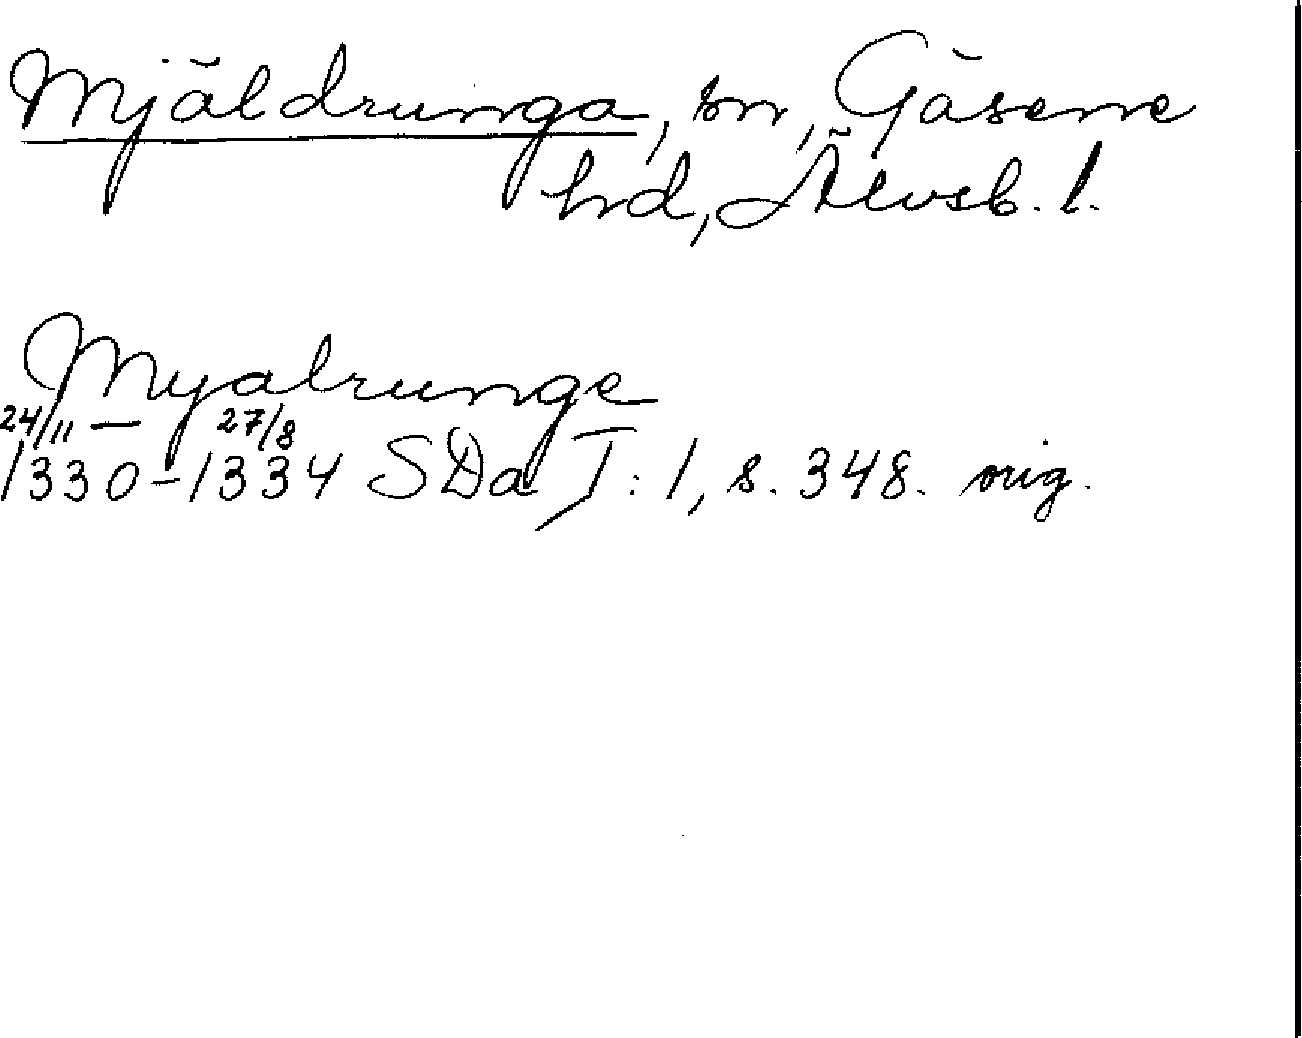 Mjäldrunga, sn, Gäsene
hd, Älvsb. l.
Myalrunge
24/11 — 27/8
1330-1334 SDa T: 1, s. 348. orig.